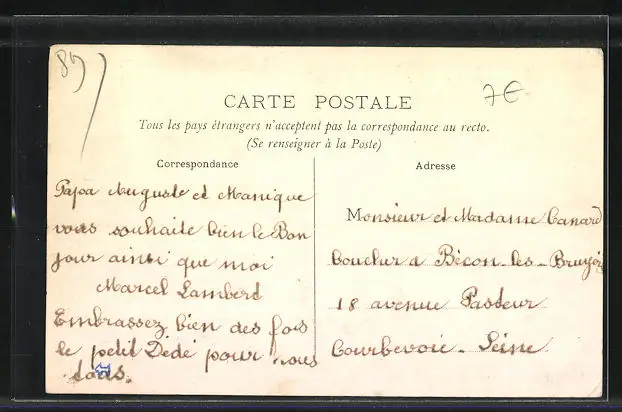 89
7€
CARTE POSTALE
Tous les pays étrangers n'acceptent pas la correspondance au recto.
(Se renseigner à la Poste)
Correspondance
Papa Auguste et Manique
vous souhaite bien le Bon
jour ainsi que moi
Marcel Lambert
Embrassez bien des fois
le petit Dédé pour nous
tous.
Adresse
Monsieur et Madame Canard
boucher a Bécon-les-Bruyères
18 avenue Pasteur
Courbevoie - Seine